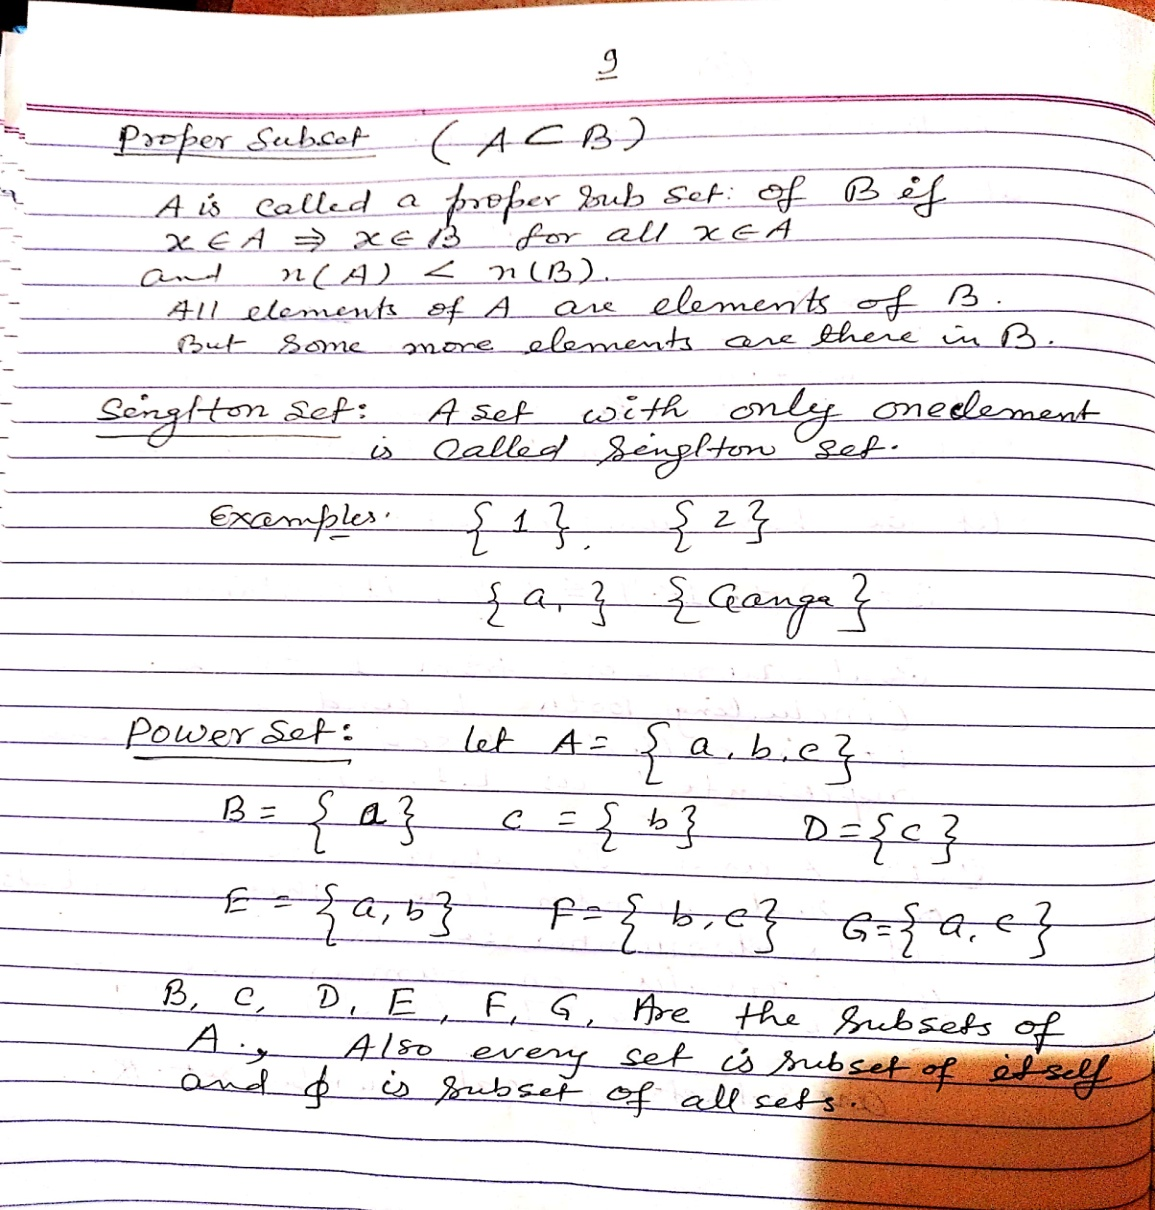 9
Proper Subset ( A ⊂ B )
A is called a proper sub set: of B if
x ∈ A ⇒ x ∈ B for all x ∈ A
and n(A) < n(B).
All elements of A are elements of B.
But some more elements are there in B.
Singlton set: A set with only one element
is called Singlton set.
Examples. { 1 }. { 2 }
{ a, } { Ganga }
Power Set: let A = { a, b, c }.
B = { a } C = { b } D = { c }
E = { a, b } F = { b, c } G = { a, c }
B, C, D, E, F, G, Are the Subsets of
A., Also every set is subset of itself
and ϕ is subset of all sets.